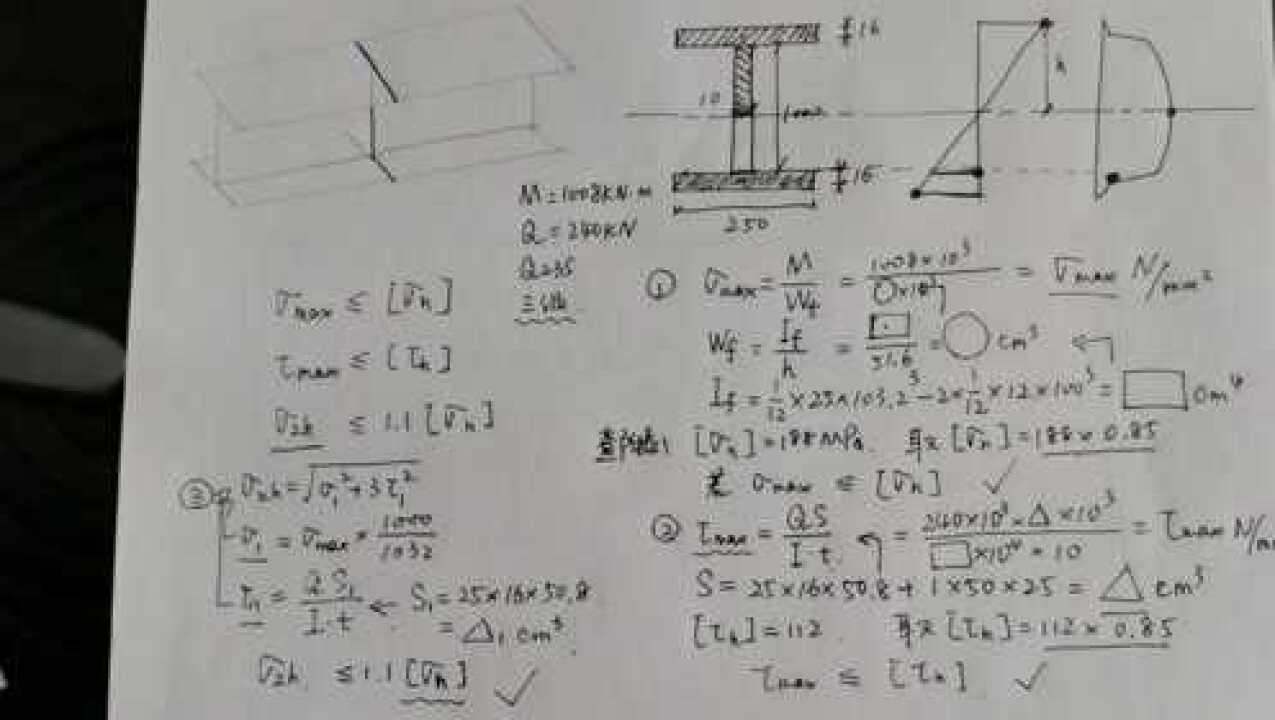 16
10
1000
h
16
250
M=1008KN·m
Q=240KN
Q235
三级
① σmax = M/Wf = 1008×10³/○×10³ = σmax N/mm²
Wf = If/h = □/51.6 = ○ cm³
If = 1/12 × 25×103.2³ - 2×1/12×12×100³ = □ cm⁴
[σh]=188MPa. 取 [σh]=188×0.85
σmax ≤ [σh] ✓
② τmax = QS/I·t = 240×10³×△×10³/□×10⁴×10 = τmax N/m
S = 25×16×50.8 + 1×50×25 = △ cm³
[τh]=112 取 [τh]=112×0.85
τmax ≤ [τh] ✓
σmax ≤ [σh]
τmax ≤ [τh]
σzh ≤ 1.1 [σh]
③ σzh = √σ₁²+3τ₁²
σ₁ = σmax × 1000/1032
τ₁ = QS₁/I·t ← S₁ = 25×16×50.8
= △₁ cm³
σzh ≤ 1.1 [σh] ✓